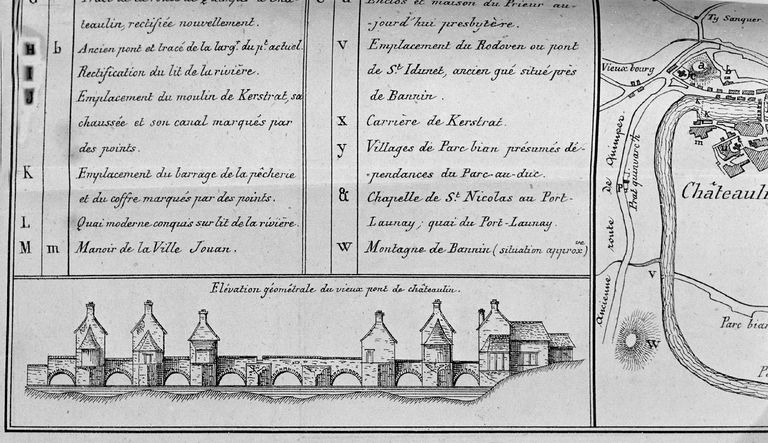 teaulin, rectifiée nouvellement.
H b Ancien pont et tracé de la largr. du pt. actuel.
I Rectification du lit de la rivière.
J Emplacement du moulin de Kerstrat, sa
chaussée et son canal marqués par
des points.
K Emplacement du barrage de la pêcherie
et du coffre marqués par des points.
L Quai moderne conquis sur lit de la rivière.
M m Manoir de la Ville Jouan.
Enclos et maison du Prieur au-
-jourd'hui presbytère.
v Emplacement du Rodoven ou pont
de St. Idunet, ancien gué situé près
de Bannin.
x Carrière de Kerstrat.
y Villages de Parc bian présumés dé-
-pendances du Parc-au-duc.
& Chapelle de St. Nicolas au Port-
Launay; quai du Port-Launay.
W Montagne de Bannin (situation approxve)
Elévation géométrale du vieux pont de châteaulin.
Ty Sanquer
Vieux bourg
a
b
K
m
P
Prat quinvarc'h
Ancienne route de Quimper
Châteaulin
V
Parc bian
W